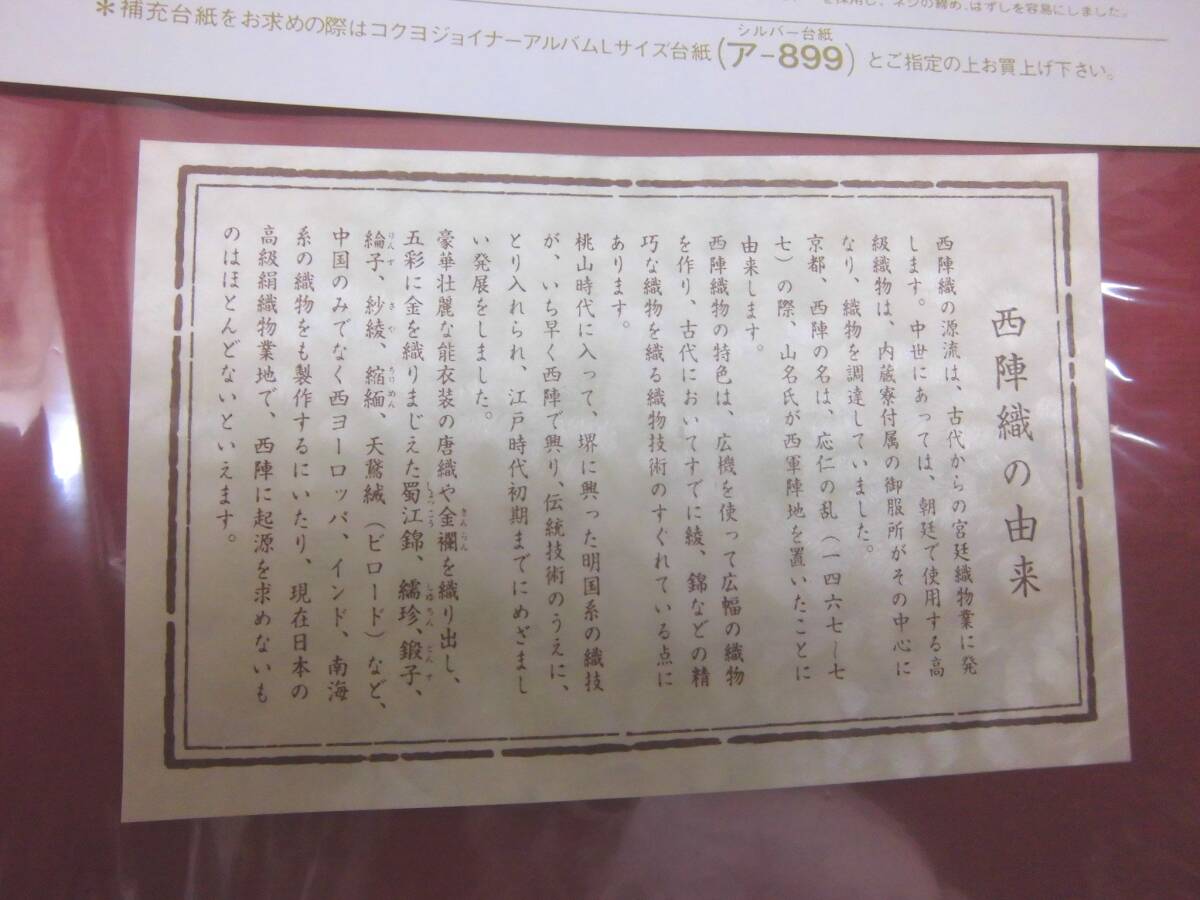 を採用し、ネジの締め、はずしを容易にしました。
シルバー台紙
＊補充台紙をお求めの際はコクヨジョイナーアルバムLサイズ台紙(ア-899)とご指定の上お買上げ下さい。
西陣織の由来
西陣織の源流は、古代からの宮廷織物業に発
します。中世にあっては、朝廷で使用する高
級織物は、内蔵寮付属の御服所がその中心に
なり、織物を調達していました。
京都、西陣の名は、応仁の乱（一四六七〜七
七）の際、山名氏が西軍陣地を置いたことに
由来します。
西陣織物の特色は、広機を使って広幅の織物
を作り、古代においてすでに綾、錦などの精
巧な織物を織る織物技術のすぐれている点に
あります。
桃山時代に入って、堺に興った明国系の織技
が、いち早く西陣で興り、伝統技術のうえに、
とり入れられ、江戸時代初期までにめざまし
い発展をしました。
豪華壮麗な能衣装の唐織や金襴を織り出し、
五彩に金を織りまじえた蜀江錦、繻珍、鍛子、
綸子、紗綾、縮緬、天鵞絨（ビロード）など、
中国のみでなく西ヨーロッパ、インド、南海
系の織物をも製作するにいたり、現在日本の
高級絹織物業地で、西陣に起源を求めないも
のはほとんどないといえます。